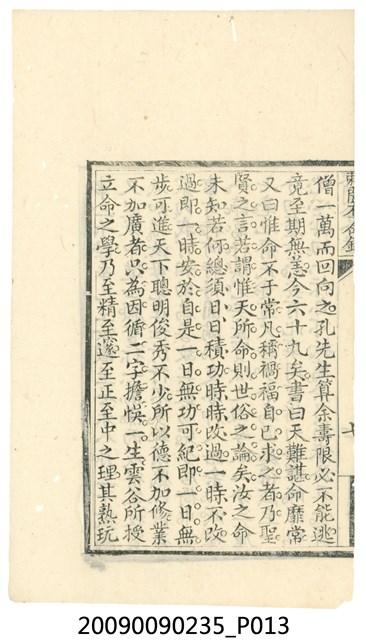 僧一萬而回向之。孔先生算余壽限必不能逃
竟至期無恙。今六十九矣。書曰天難諶命靡常
又曰惟命不于常。凡稱禍福自己求之者。乃聖
賢之言。若謂惟天所命。則世俗之論矣。汝之命
未知若何。總須日日積功。時時改過。一時不改
過。即一時安於自是。一日無功可紀。即一日無
步可進。天下聰明俊秀不少。所以德不加修。業
不加廣者。只為因循二字。擔悞一生。雲谷所授
立命之學。乃至精至邃至正至中之理。其熟玩
20090090235_P013